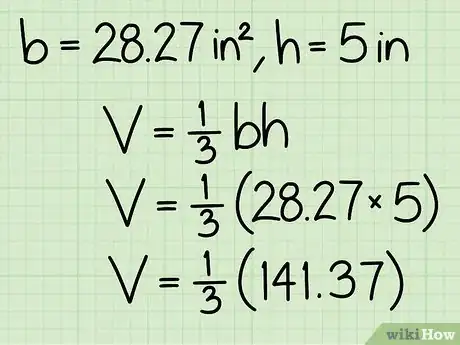 b = 28.27 in², h = 5 in
V = 1/3 bh
V = 1/3 (28.27 × 5)
V = 1/3 (141.37)
wikiHow